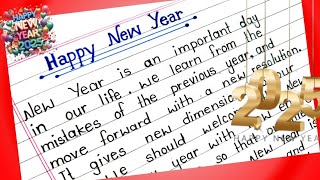 HAPPY
NEW
YEAR
2025
Happy New Year
New Year is an important day
in our life. We learn from the
mistakes of the previous year and
move forward with a new resolution.
It gives new dimension
our
We should welcome
new
year with
so that
2025
HAPPY NEW YEAR